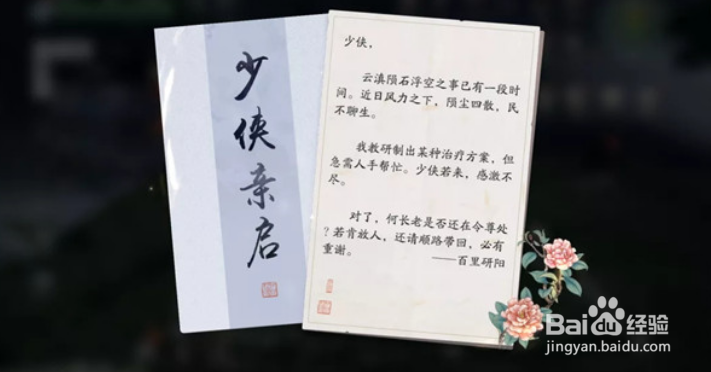 少侠亲启
少侠，
云滇陨石浮空之事已有一段时
间。近日风力之下，陨尘四散，民
不聊生。
我教研制出某种治疗方案，但
急需人手帮忙。少侠若来，感激不
尽。
对了，何长老是否还在令尊处
？若肯放人，还请顺路带回，必有
重谢。
——百里研阳
Baidu经验
jingyan.baidu.com